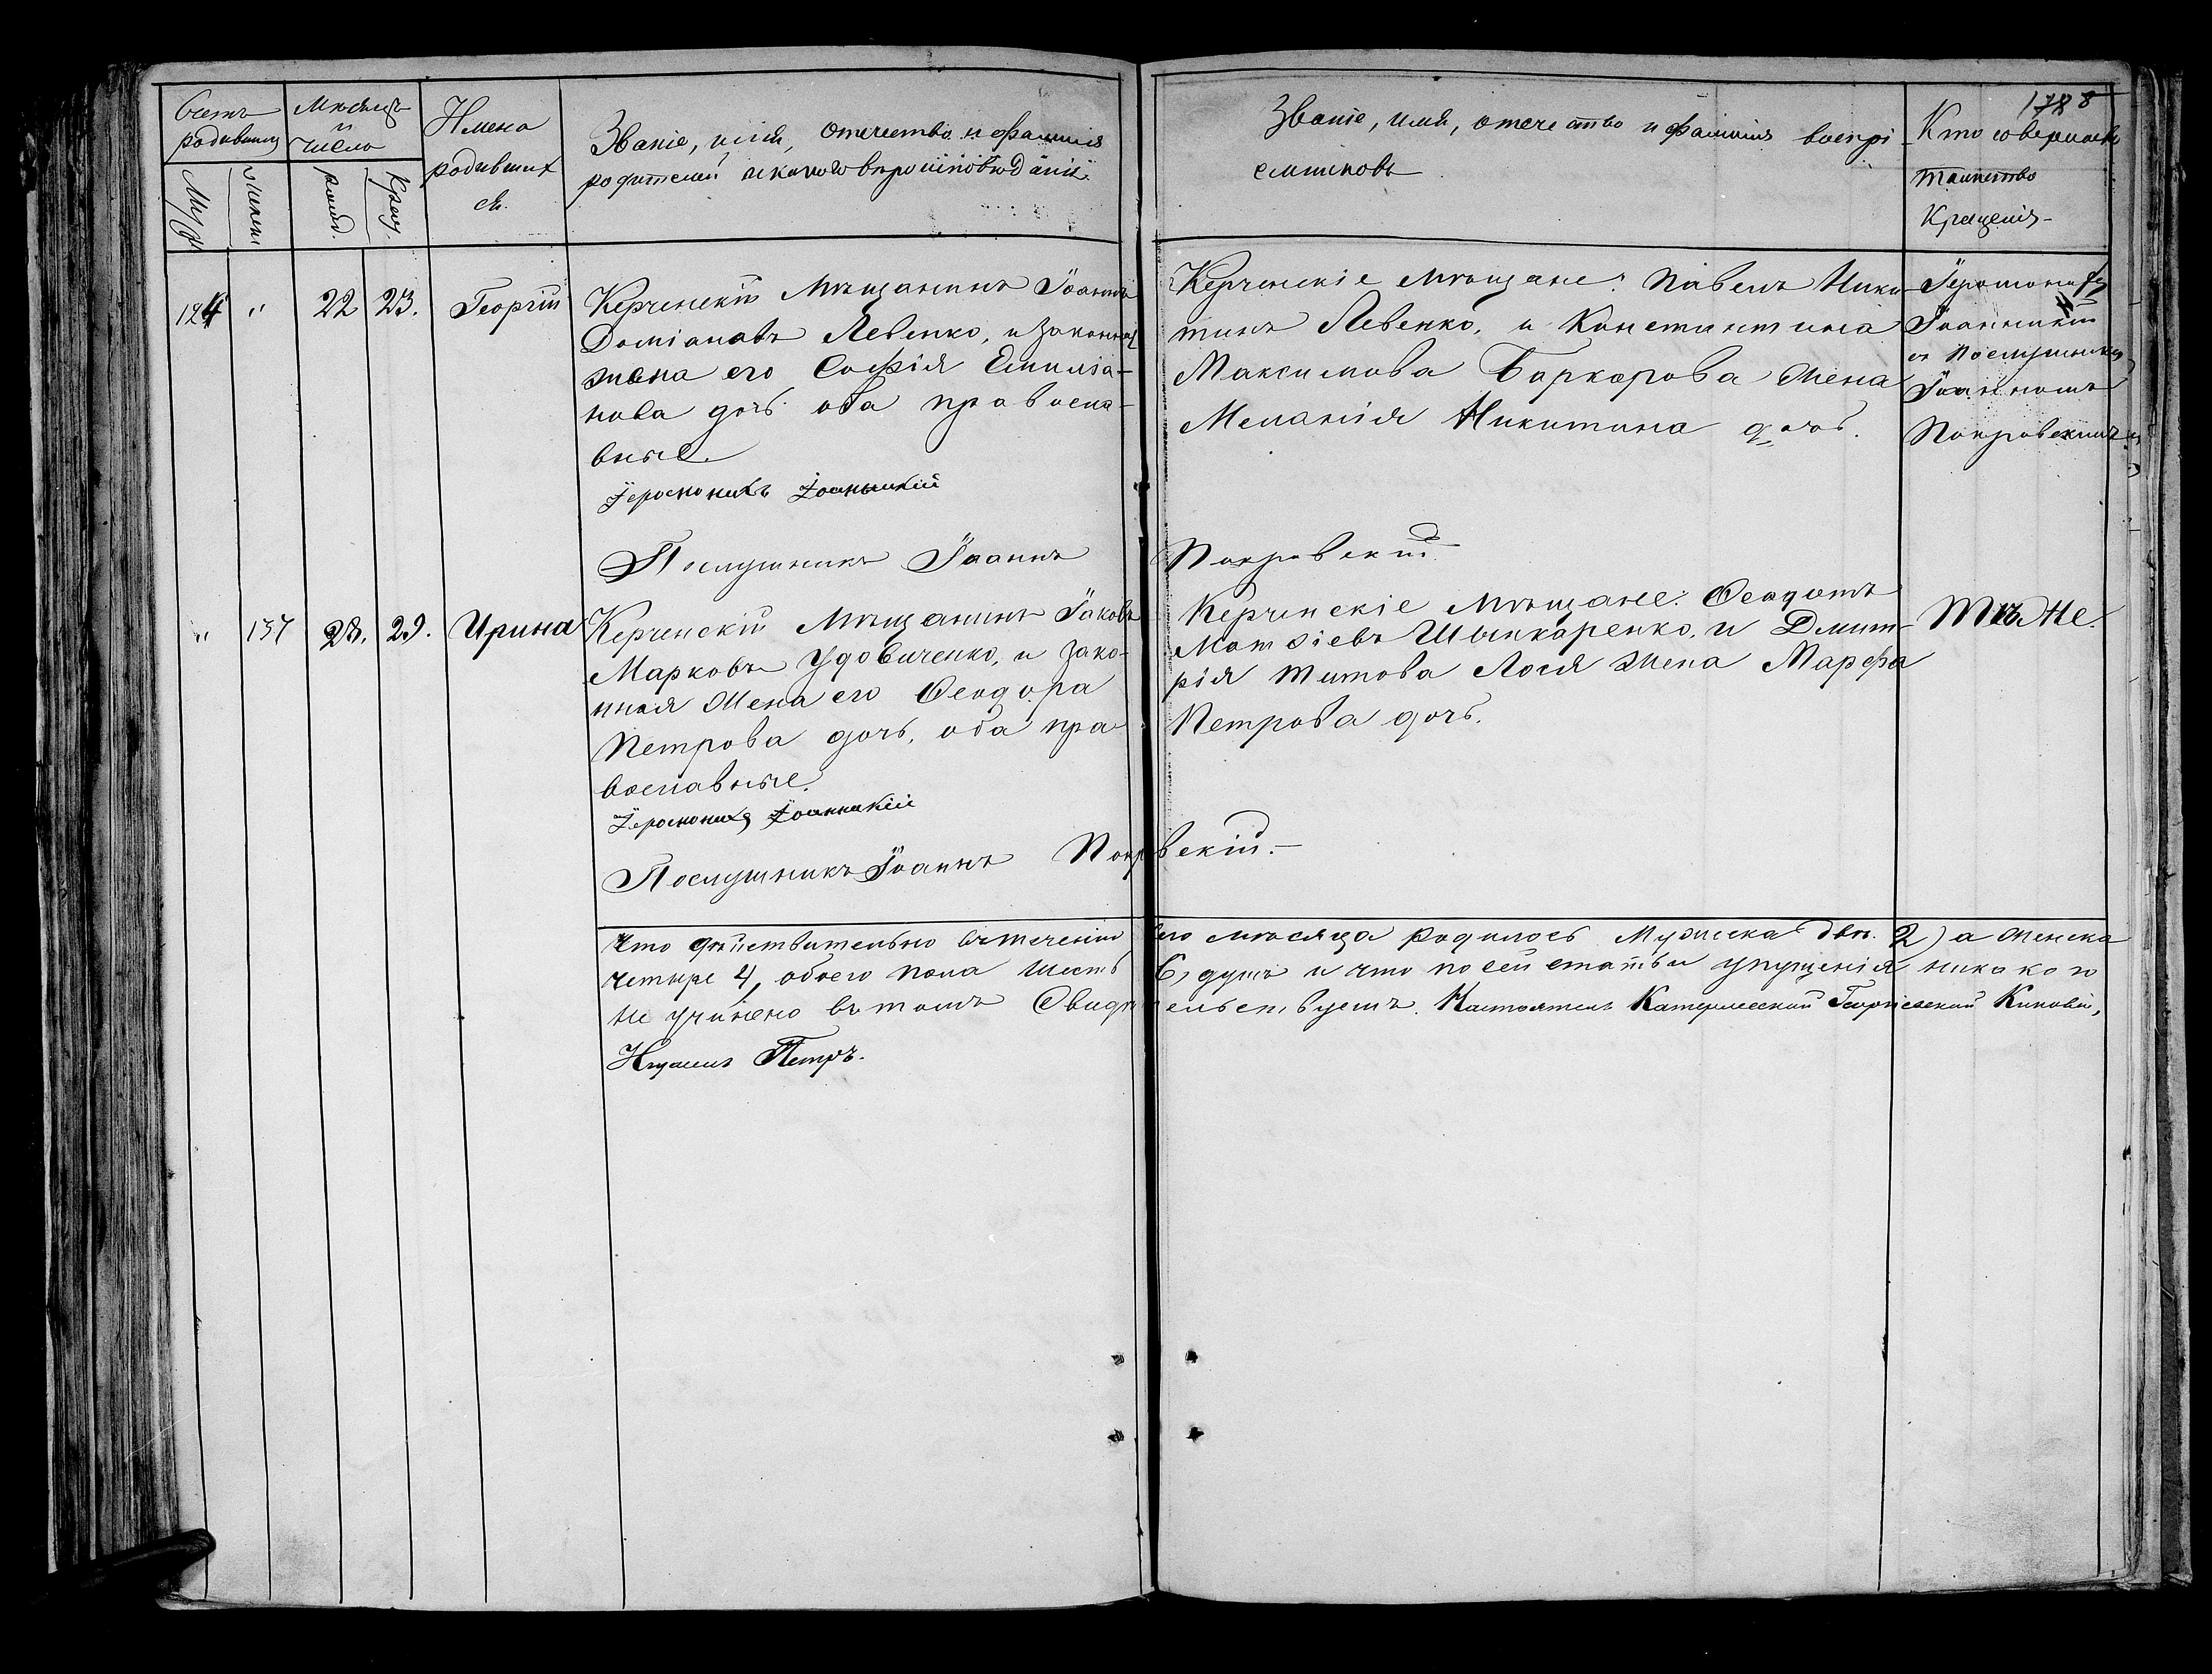 Счетъ
родившихся
Мѣсяцъ
и
число
Имена
родивших
ся.
Званіе, имя, отечество и фамилія
родителей и какого вѣроисповѣданія.
Муж.
Женс.
рожд.
Крещ.
Званіе, имя, отечество и фамилія воспрі-
емниковъ
178 8
Кто совершалъ
таинство
Крещенія-
124 " 22 23. Георгій
Керченскій Мѣщанинъ Іоаннъ
Доміановъ Левенко, и законная
жена его Софія Емиліа-
нова дочь: оба правосла-
вные.
Іеромонахъ Іоанникій
Послушникъ Іоаннъ Покровскій
Керченскіе мѣщане: Павелъ Ники-
тинъ Левенко, и Константина
Максимова жена
Меланія Никитина дочь.
Іеромонахъ
Іоанникій
съ послушникомъ
Іоанномъ
Покровскимъ
" 137 28. 29. Ирина
Керченскій Мѣщанинъ Іаковъ
Марковъ Удовиченко, и зако-
нная жена его Феодора
Петрова дочь, оба пра-
вославные.
Іеромонахъ Іоанникій
Послушникъ Іоаннъ Покровскій.-
Керченскіе мѣщане: Феодотъ
Матѳіевъ Шынкаренко, и Димит-
рія Титова Лося жена Марфа
Петрова дочь.
Тѣ же.
Что дѣйствительно въ теченіи сего мѣсяца родилось Мужеска два. 2) а женска
четыре 4, обоего пола шесть 6, душъ и что по сей статьи упущенія никакого
не учинено въ томъ Свидѣтельствуетъ. Настоятель Катерлесской Георгіевской Киновіи,
Игуменъ Петръ.